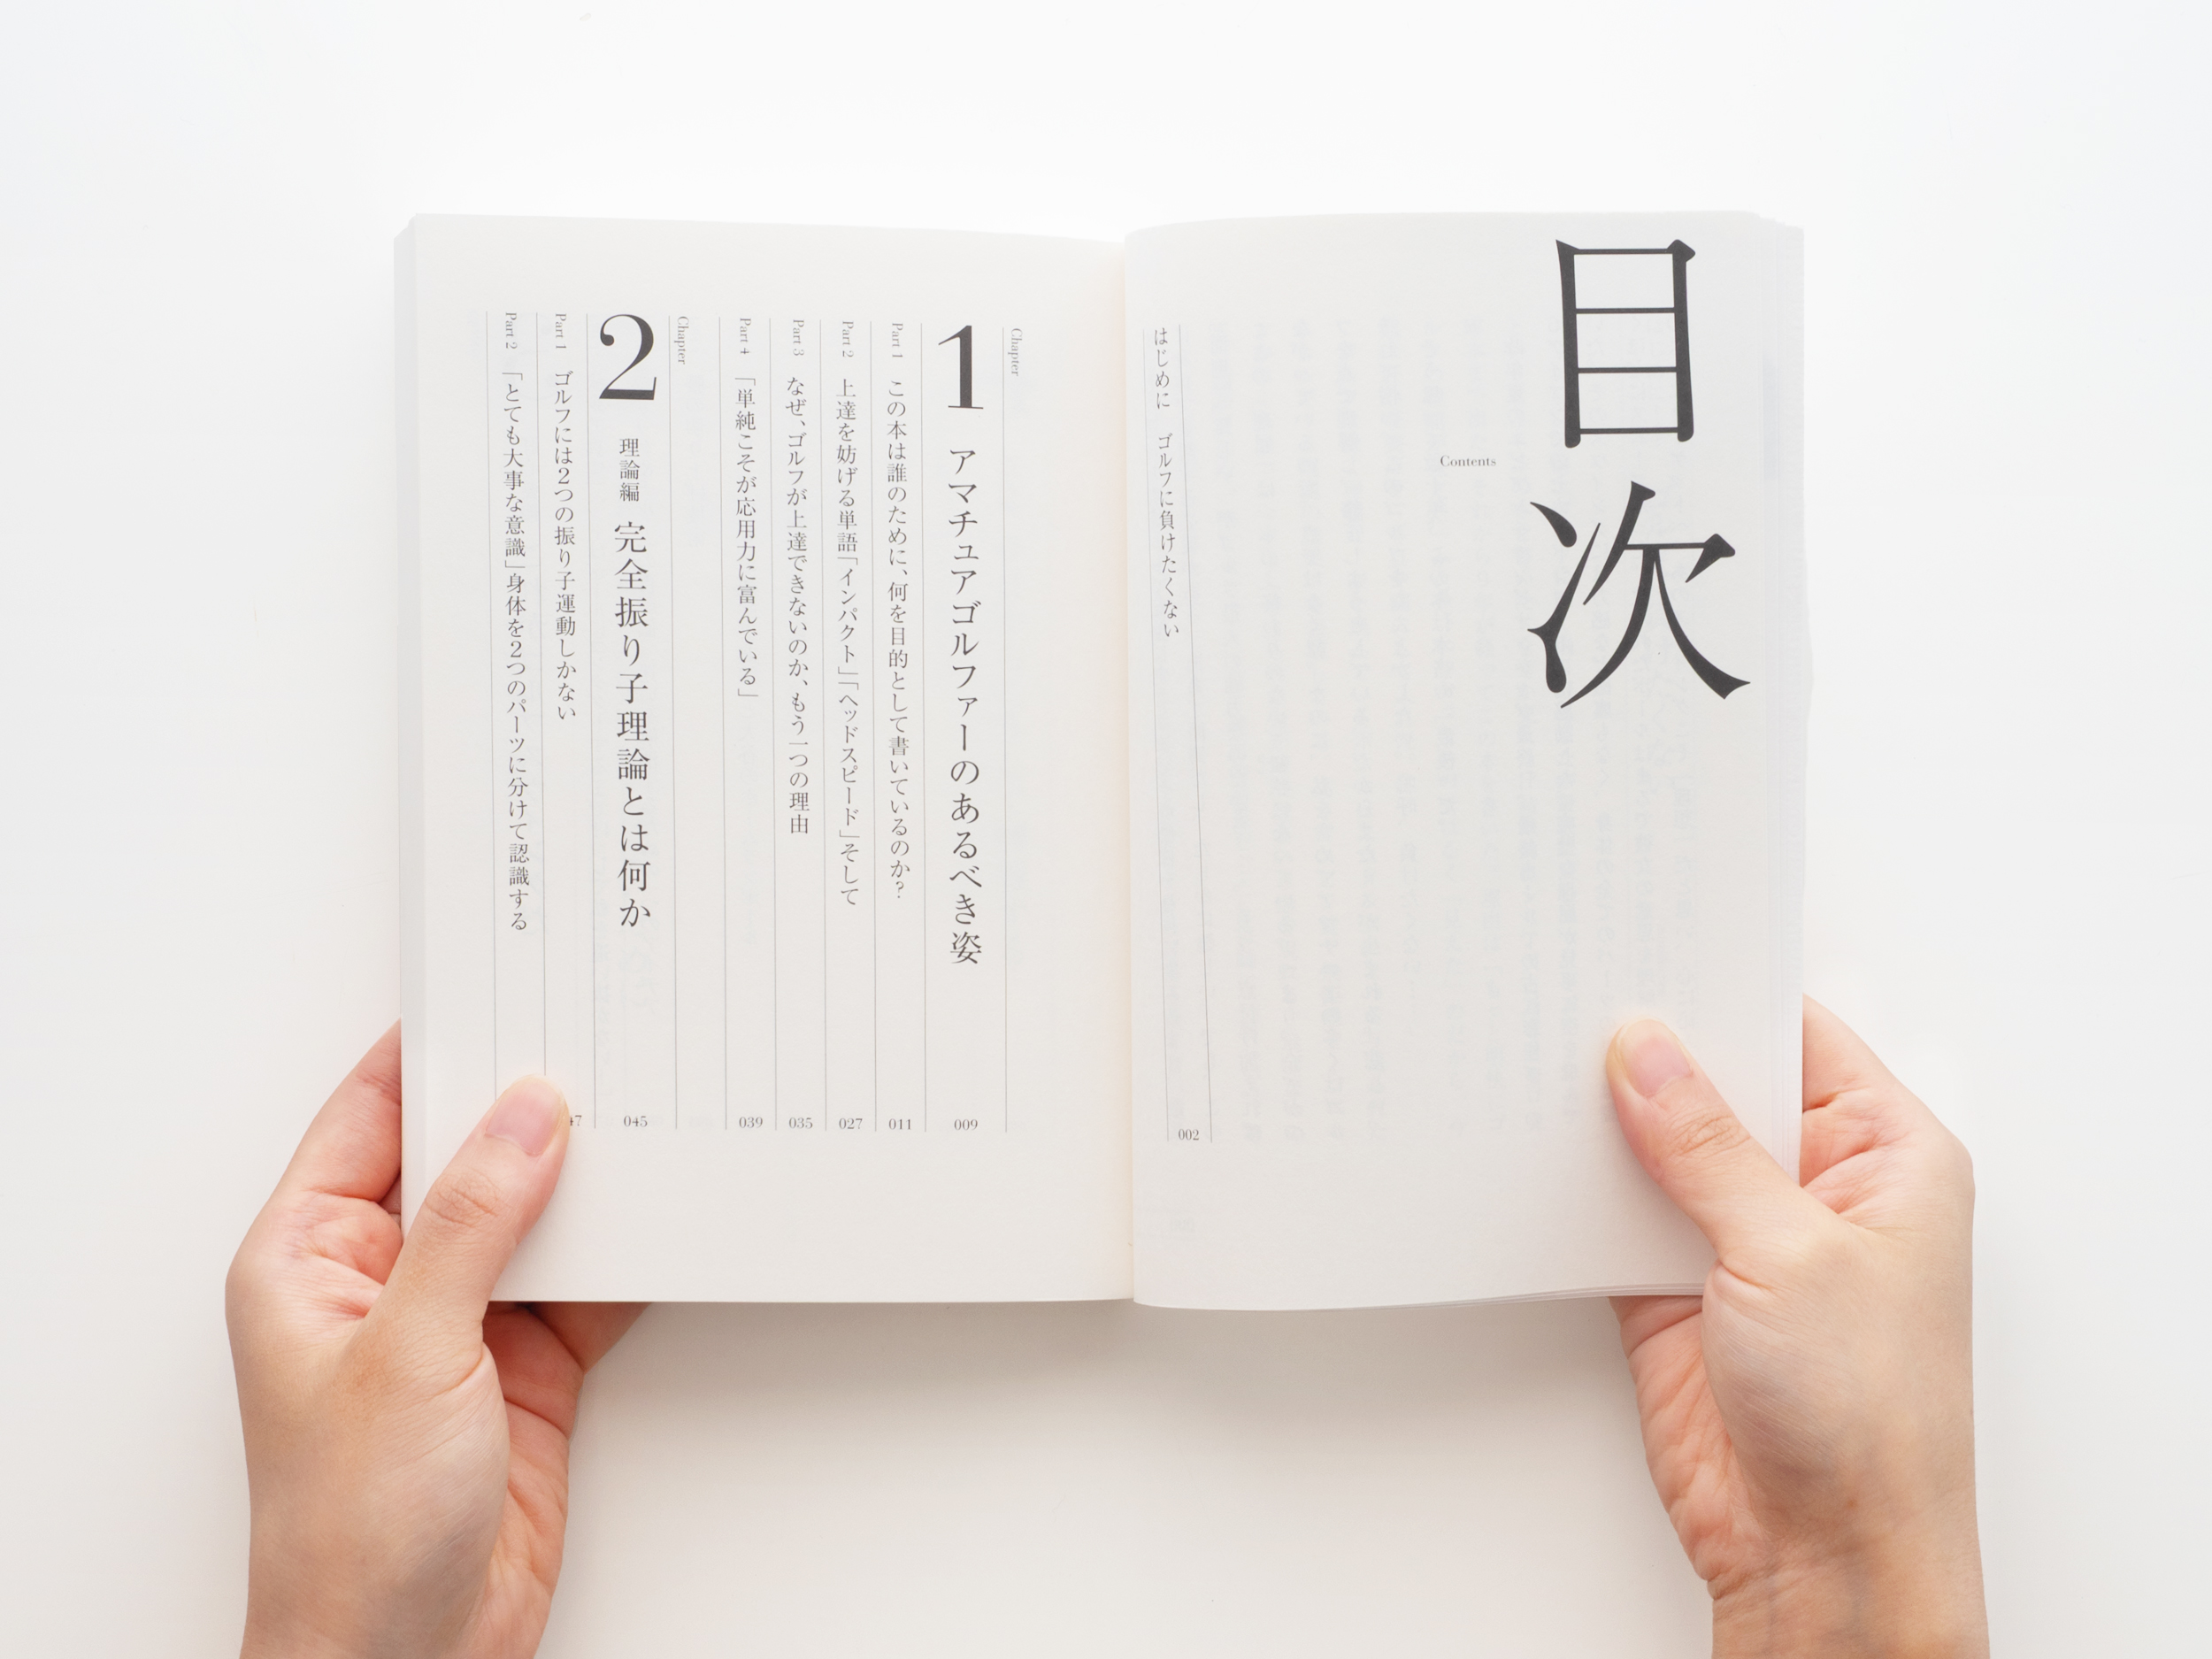 目次
Contents
はじめに ゴルフに負けたくない 002
Chapter
1 アマチュアゴルファーのあるべき姿 009
Part 1 この本は誰のために、何を目的として書いているのか? 011
Part 2 上達を妨げる単語「インパクト」「ヘッドスピード」そして 027
Part 3 なぜ、ゴルフが上達できないのか、もう一つの理由 035
Part 4 「単純こそが応用力に富んでいる」 039
Chapter
2 理論編 完全振り子理論とは何か 045
Part 1 ゴルフには2つの振り子運動しかない 47
Part 2 「とても大事な意識」身体を2つのパーツに分けて認識する